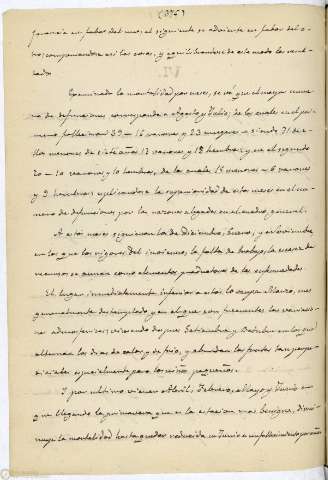 (336)
ganancia en favor del uno, al siguiente se advierte en favor del o-
tro compensandose asi las cosas, y equilibrandose de este modo los resul-
tados.
Examinada la mortalidad por meses, se vé que el mayor nume-
ro de defunciones corresponde a Agosto y Julio; de los cuales en el pri-
mero fallecieron 39 = 16 varones y 23 mugeres = siendo 31 de e-
llos menores de siete años 13 varones y 18 hembras; y en el segundo
20 = 10 varones y 10 hembras, de los cuales 15 menores = 6 varones
y 9 hembras; esplicandose la superioridad de estos meses en el nu-
mero de defunciones por las razones alegadas en el cuadro general.
A estos meses siguen los de Diciembre, Enero, y Noviembre
en los que los rigores del invierno, la falta de trabajo, la escasez de
recursos se aunan como elementos productores de las enfermedades.
El lugar inmediatamente inferior a estos lo ocupa Marzo, mes
generalmente destemplado y en el que son frecuentes las variacio-
nes atmosfericas; viniendo despues Setiembre y Octubre en los que
alternan los dias de calor y de frio, y abundan las frutas tan perju-
diciales especialmente para los niños pequeños.
Y por ultimo vienen Abril, Febrero, Mayo y Junio en
que llegando la primavera que es la estacion mas benigna, dismi-
nuye la mortalidad hasta quedar reducida en Junio a un fallecimiento por año